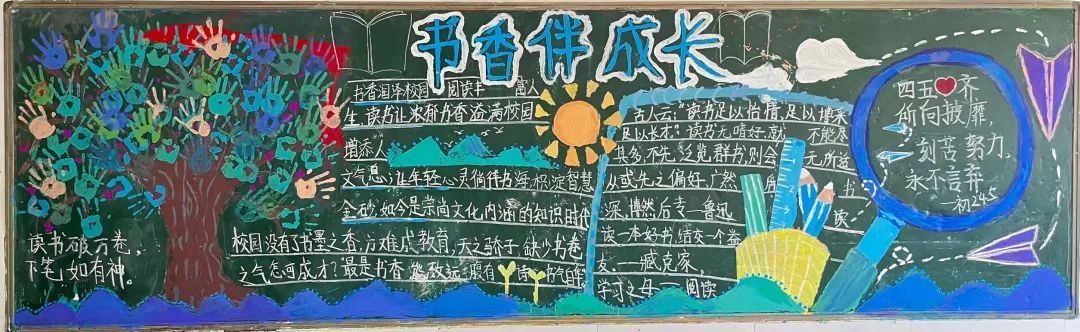 书香伴成长
书香润泽校园 阅读丰富人
生,读书让浓郁书香溢满校园
增添人
文气息;让年轻心灵倘佯书海,积淀智慧
金砂,如今是崇尚文化,内涵的知识时代
校园没有了书墨之香,万难成教育,天之骄子,缺少书卷
之气怎可成才?最是书香能致远,腹有诗书气自华
读书破万卷,
下笔如有神。
古人云:“读书足以怡情,足以博采
足以长才。”读书无嗜好,就不能尽
其多,不先泛览群书,则会无所适
从或先之偏好,广然后
深,博然后专一鲁迅
读一本好书,结交一个益
友。一臧克家,
学习之母——阅读
书
读
四五❤齐
所向披靡,
刻苦努力,
永不言弃
—初245